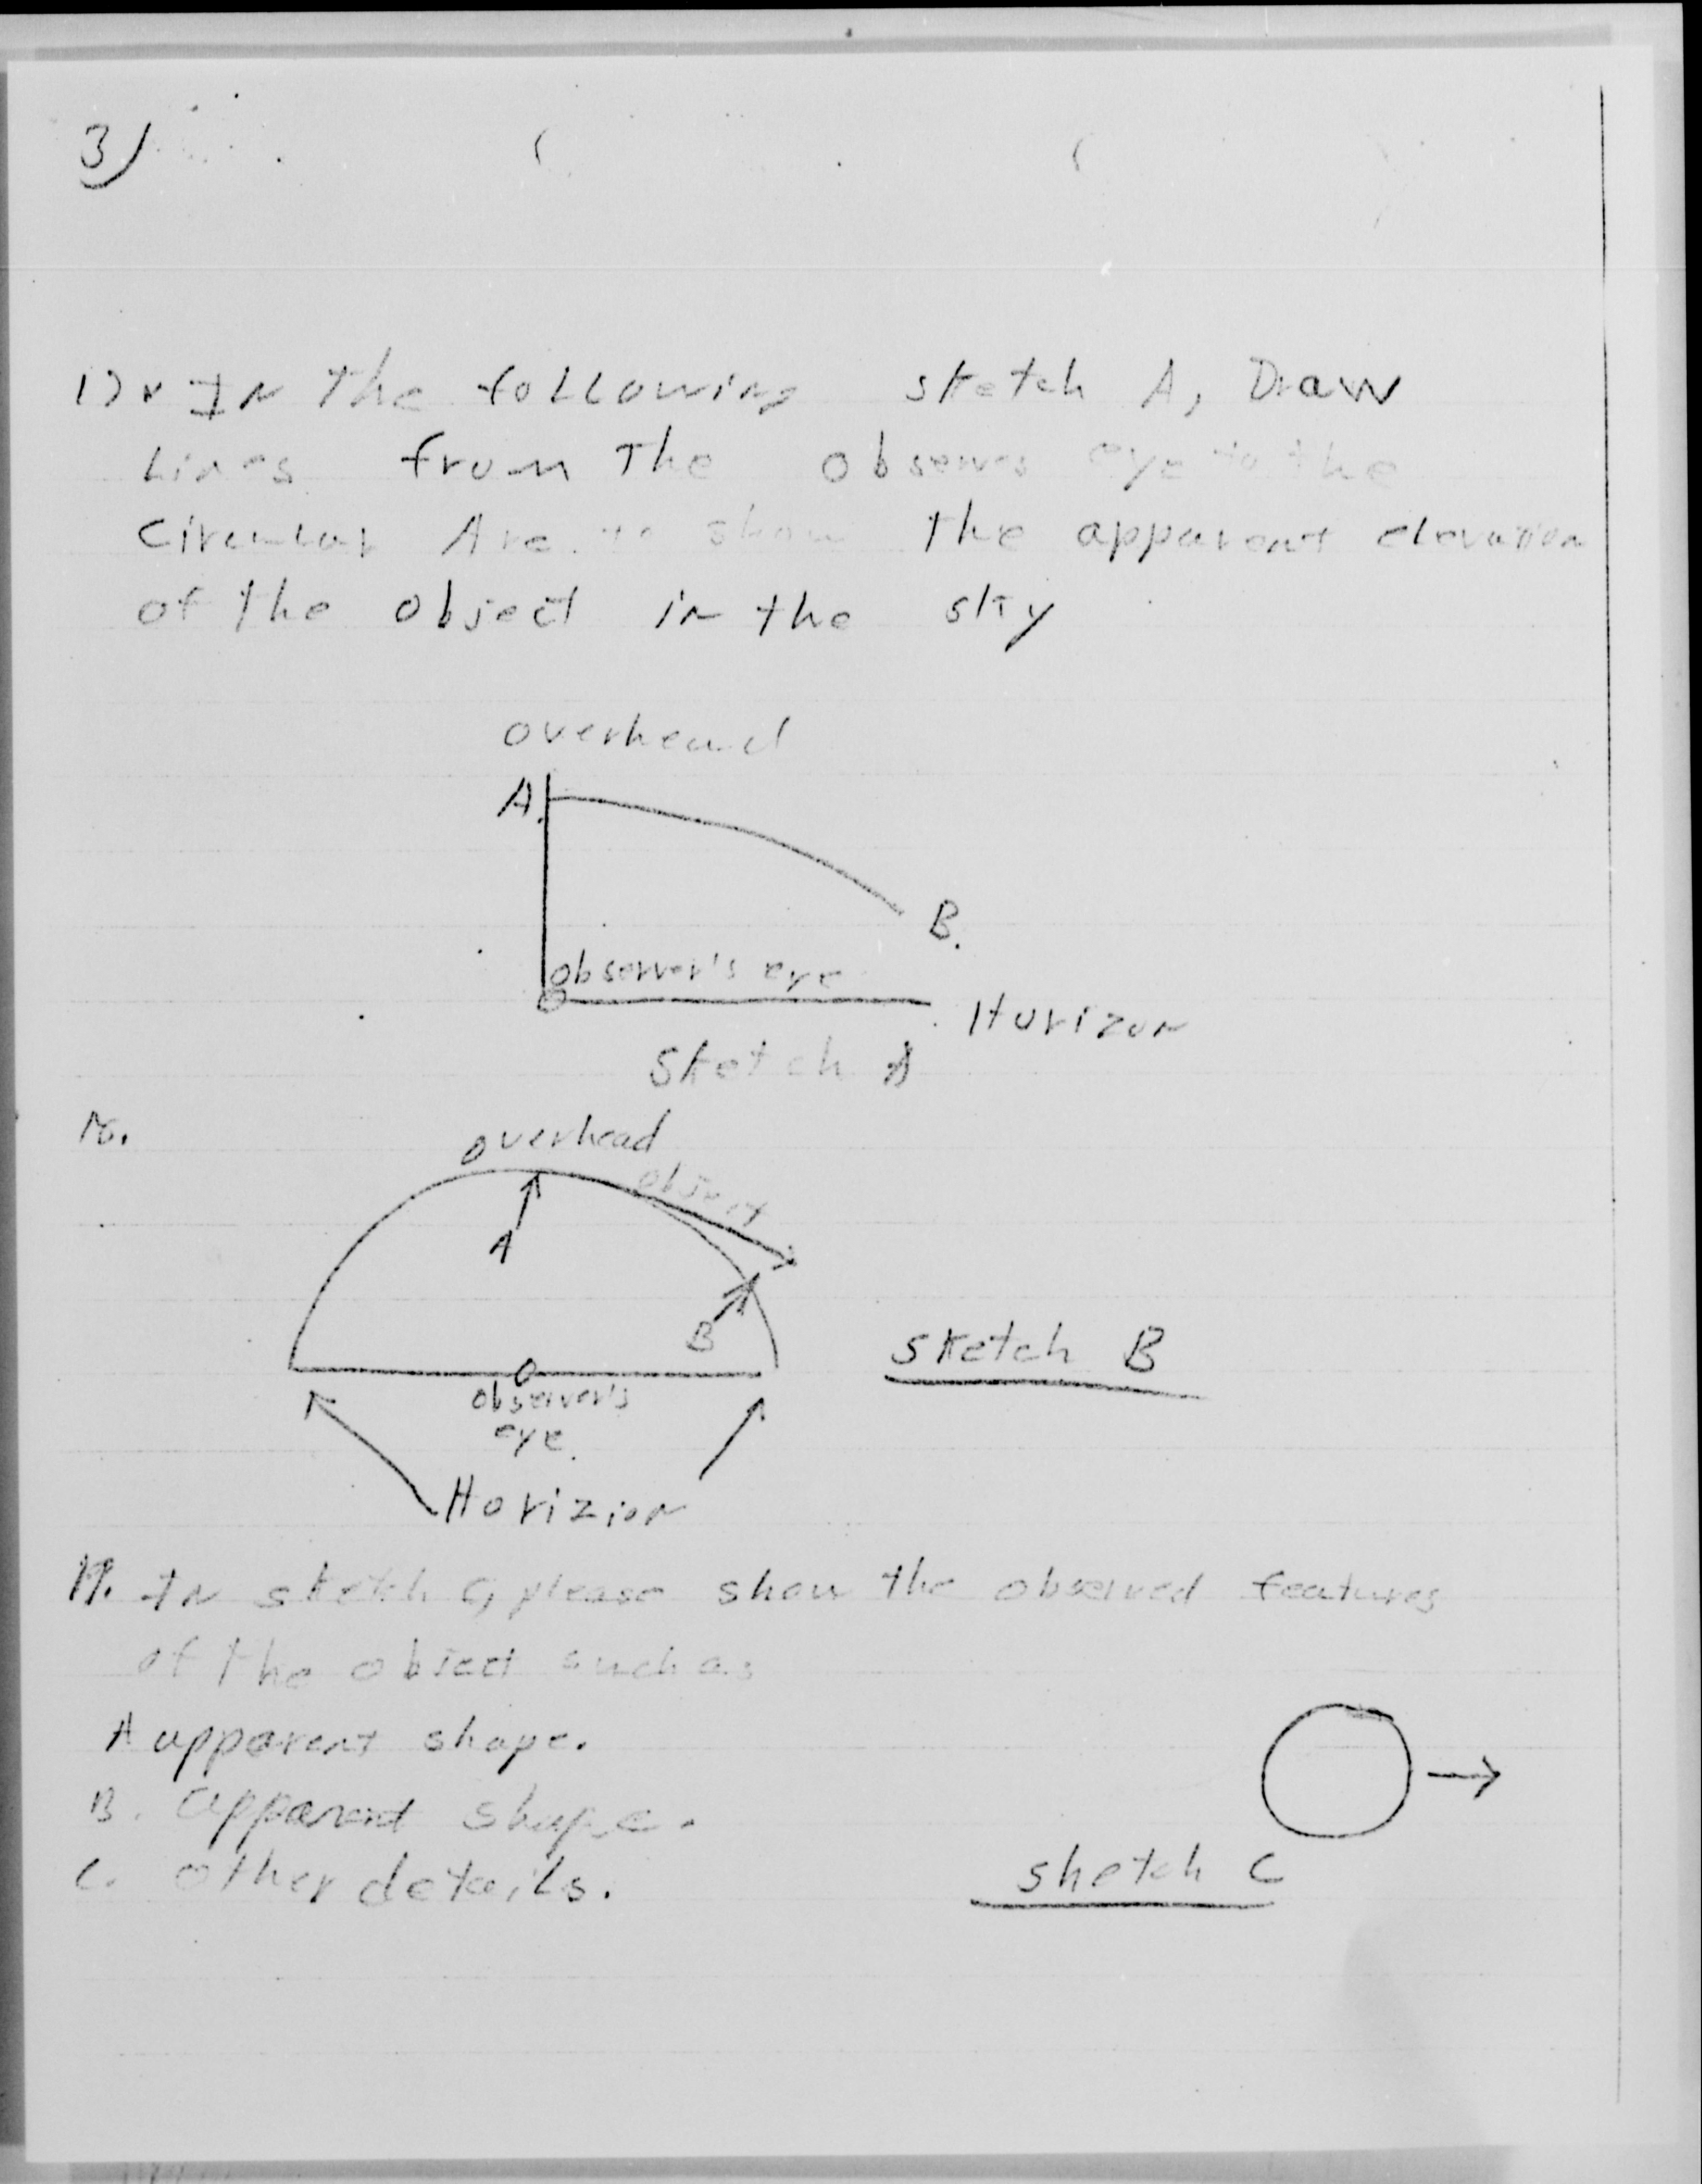 3)
In The following sketch A, Draw
Lines from The observes eye to the
Circular Arc. to show the apparent elevation
of the object in the sky
overhead
A.
B.
observer's eye
Horizon
Sketch A
overhead
object
A
B
sketch B
observer's
eye.
Horizion
19. In sketch C, please show the observed features
of the object such as
A apparent shape.
B. apparent shape.
C. other details.
sketch C